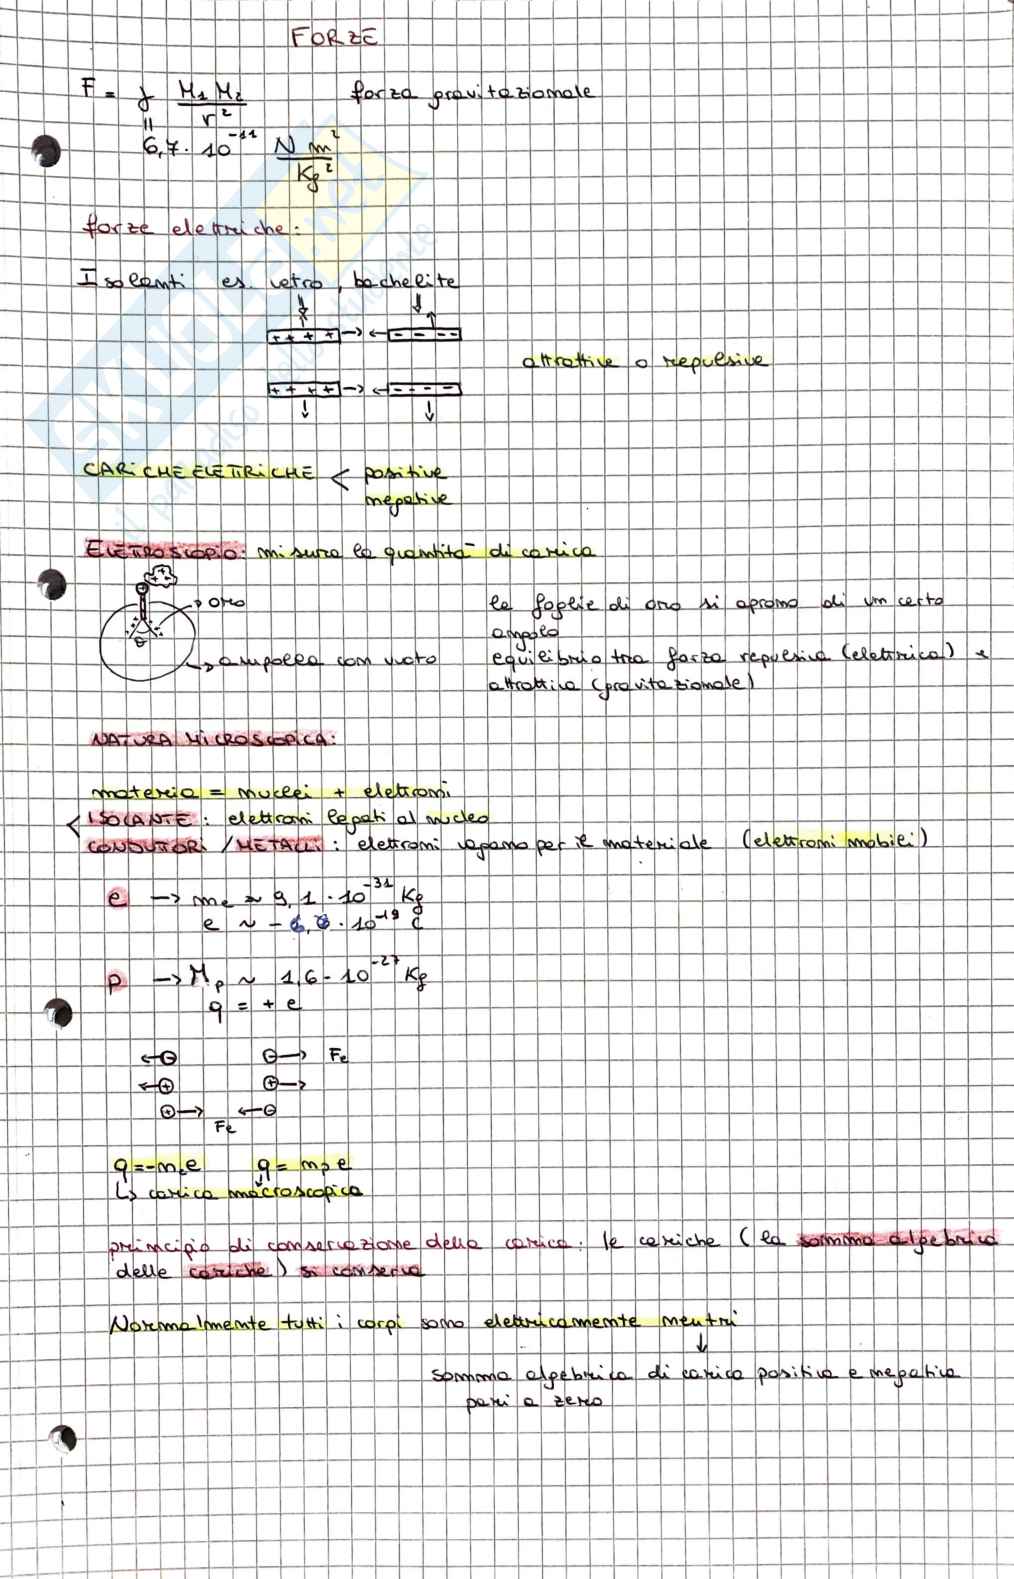 FORZE
F = γ M₁ M₂ / r² forza gravitazionale
=
6,7 · 10⁻¹¹ N m² / Kg²
forze elettriche:
Isolanti es. vetro, bachelite
+ + + + → ← - - - -
attrattive o repulsive
+ + + + → ← - - - -
CARICHE ELETTRICHE < positive
negative
ELETTROSCOPIO: misura la quantità di carica
→ oro
le foglie di oro si aprono di un certo
angolo
→ ampolla con vuoto
equilibrio tra forza repulsiva (elettrica) e
attrattiva (gravitazionale)
NATURA MICROSCOPICA:
materia = nuclei + elettroni
< ISOLANTE: elettroni legati al nucleo
CONDUTTORI / METALLI: elettroni vagano per il materiale (elettroni mobili)
e → me ≈ 9,1 · 10⁻³¹ Kg
e ~ - 1,6 · 10⁻¹⁹ C
p → Mp ~ 1,6 · 10⁻²⁷ Kg
q = + e
← ⊖ ⊖ → Fe
← ⊕ ⊕ →
⊕ → ← ⊖
Fe
q = - nₑ e q = nₚ e
↳ carica macroscopica
principio di conservazione della carica: le cariche (la somma algebrica
delle cariche) si conserva
Normalmente tutti i corpi sono elettricamente neutri
↓
somma algebrica di carica positiva e negativa
pari a zero
SKUOLA.net
il paradiso dello studente